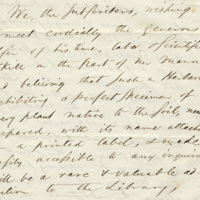 We, the Subscribers, wishing
meet cordially the generous
offer of his time, labor, scientific
skill on the part of Mr Mann
d believing that such a Herbar
hibiting a perfect specimen of
very plant native to the soil, nea
epared, with its name attach
a printed label, & made
sily accessible to any inquire
ill be a rare & valuable ad
ition to the Library,